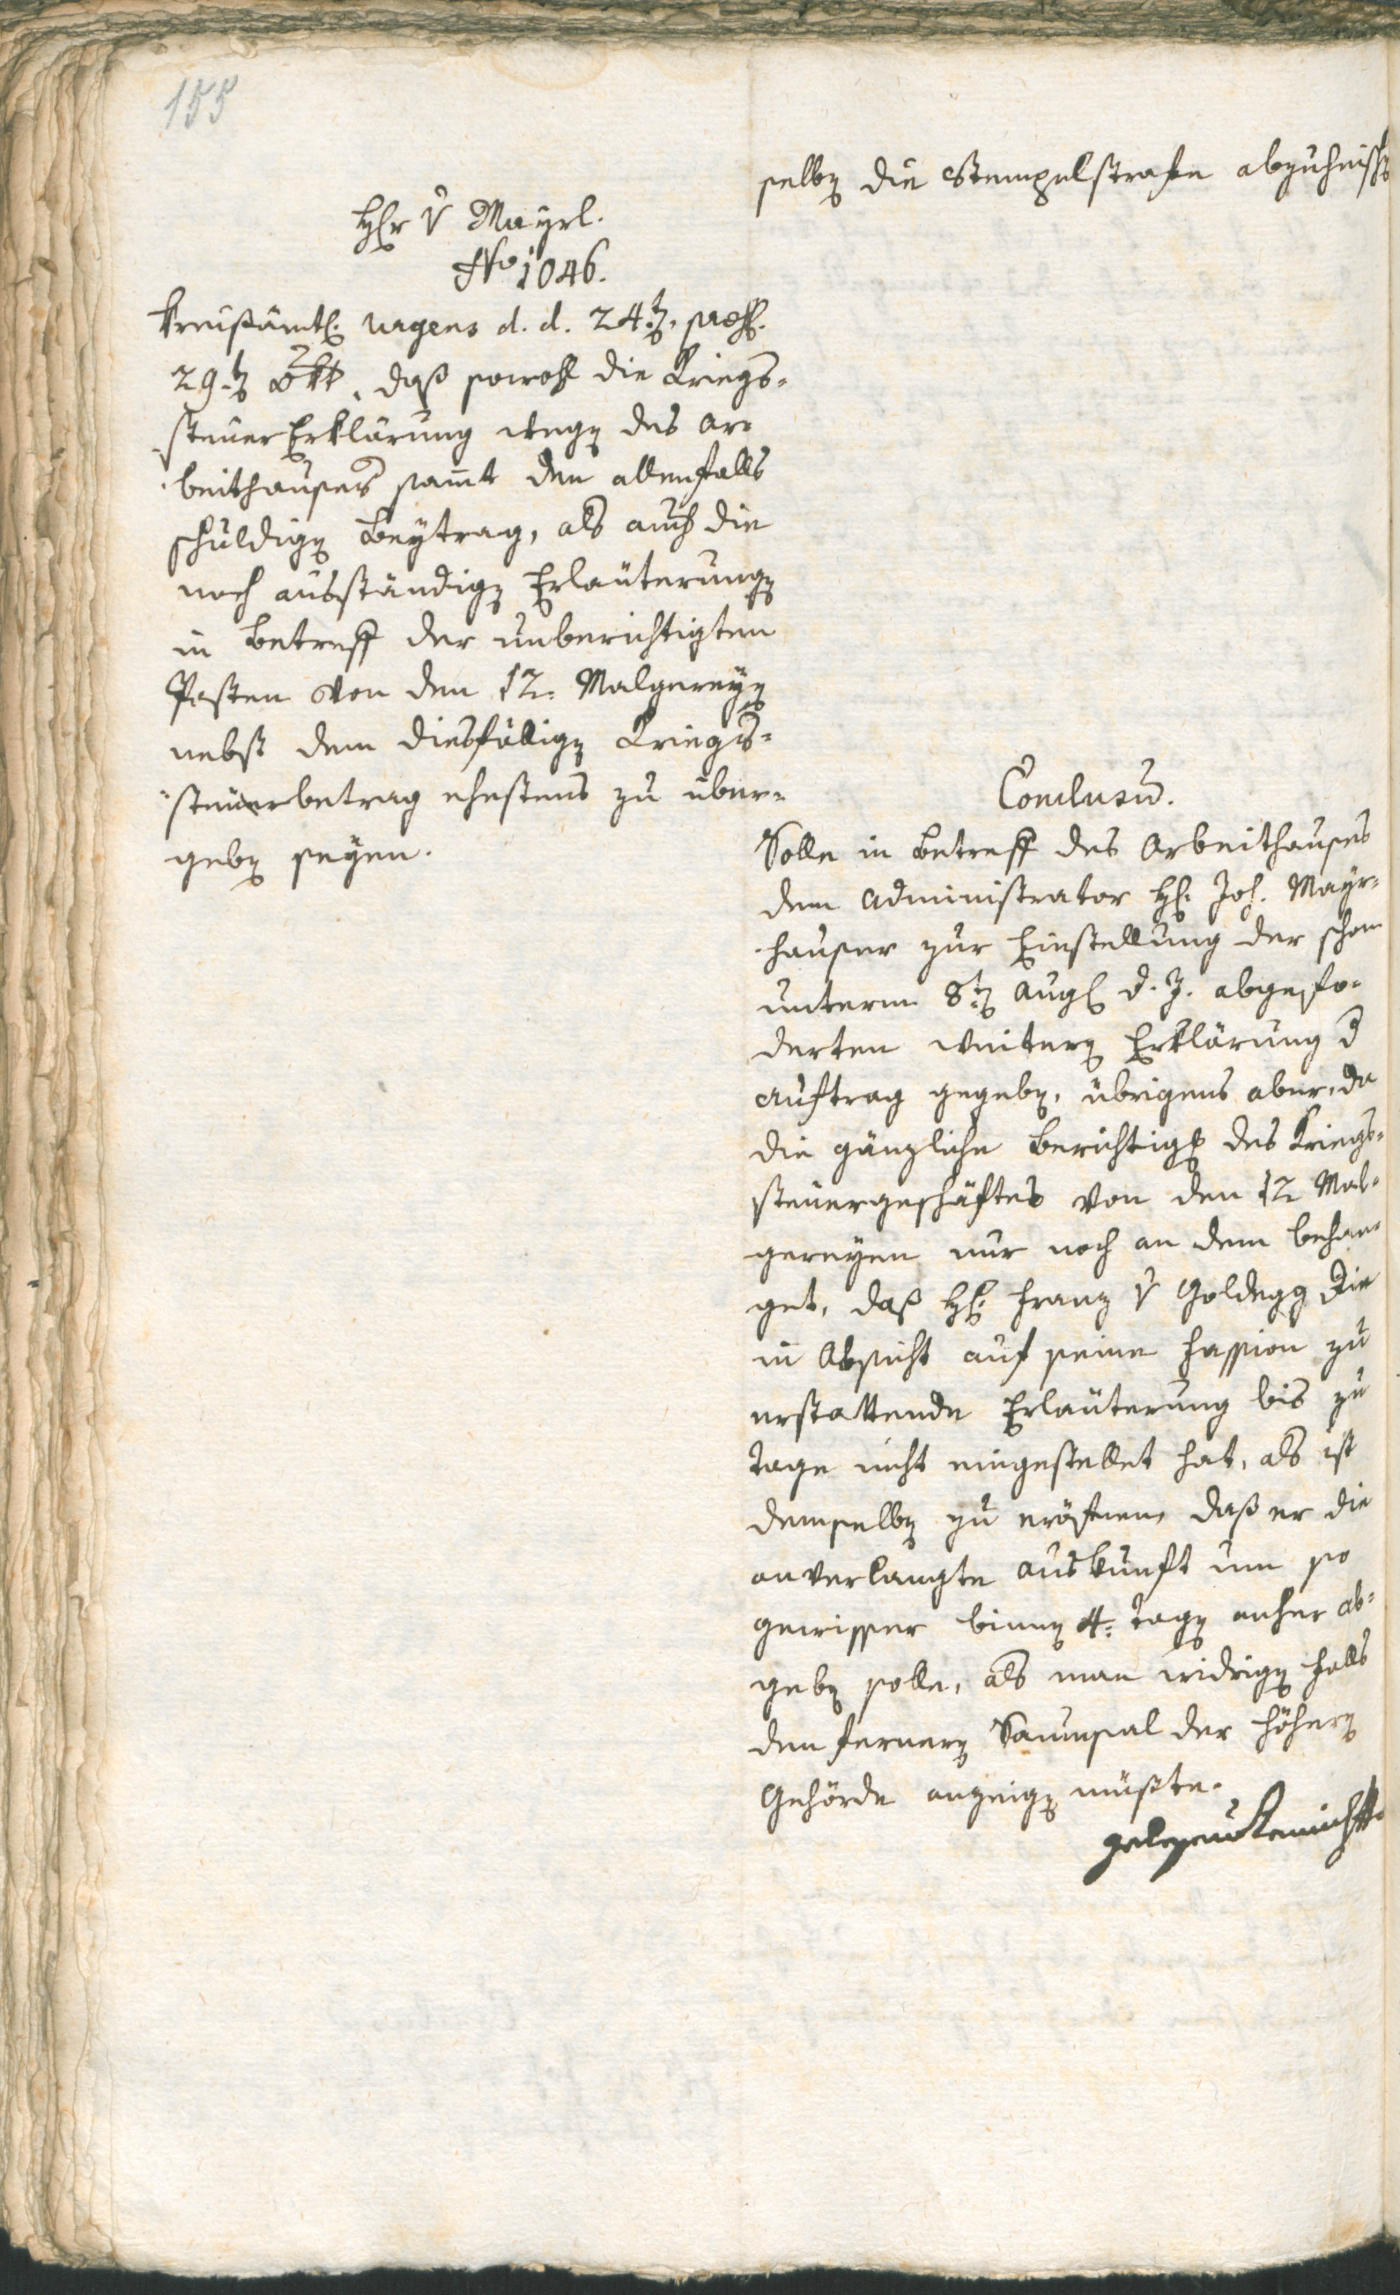 155
selben die Stempelstrafe abzuheischen
Hr v Mayrl.
No 1046.
Kreisämtl. urgens d. d. 24ten, praes.
29ten 8br, daß sowohl die Kriegs-
steuer Erklärung wegen des Ar-
beithauses samt den allenfalls
schuldigen Beytrag, als auch die
noch ausständigen Erläuterungen
in Betreff der unberichtigten
Posten von den 12. Malgereyen
nebst dem diesfälligen Kriegs-
steuerbetrag ehestens zu über-
geben seyen.
Conclusum.
Solle in Betreff des Arbeithauses
dem Administrator H. Joh. Mayr-
hauser zur Einstellung der schon
unterm 8ten Aug. d. J. abgefo-
derten weitern Erklärung d
Auftrag gegeben, übrigens aber, da
die gänzliche Berichtig des Kriegs-
steuergeschäftes von den 12 Mal-
gereyen nur noch an dem behan-
get, daß H. Franz v Goldegg die
in Absicht auf seine Fassion zu
erstattende Erläuterung bis zu
Tage nicht eingestellet hat, als ist
demselben zu eröfnen, daß er die
anverlangte Auskunft um so
gewisser binnen 4. Tagen anher ab-
geben solle, als man widrigen Falls
den fernern Saumsal der höhern
Gehörde anzeigen müßte.